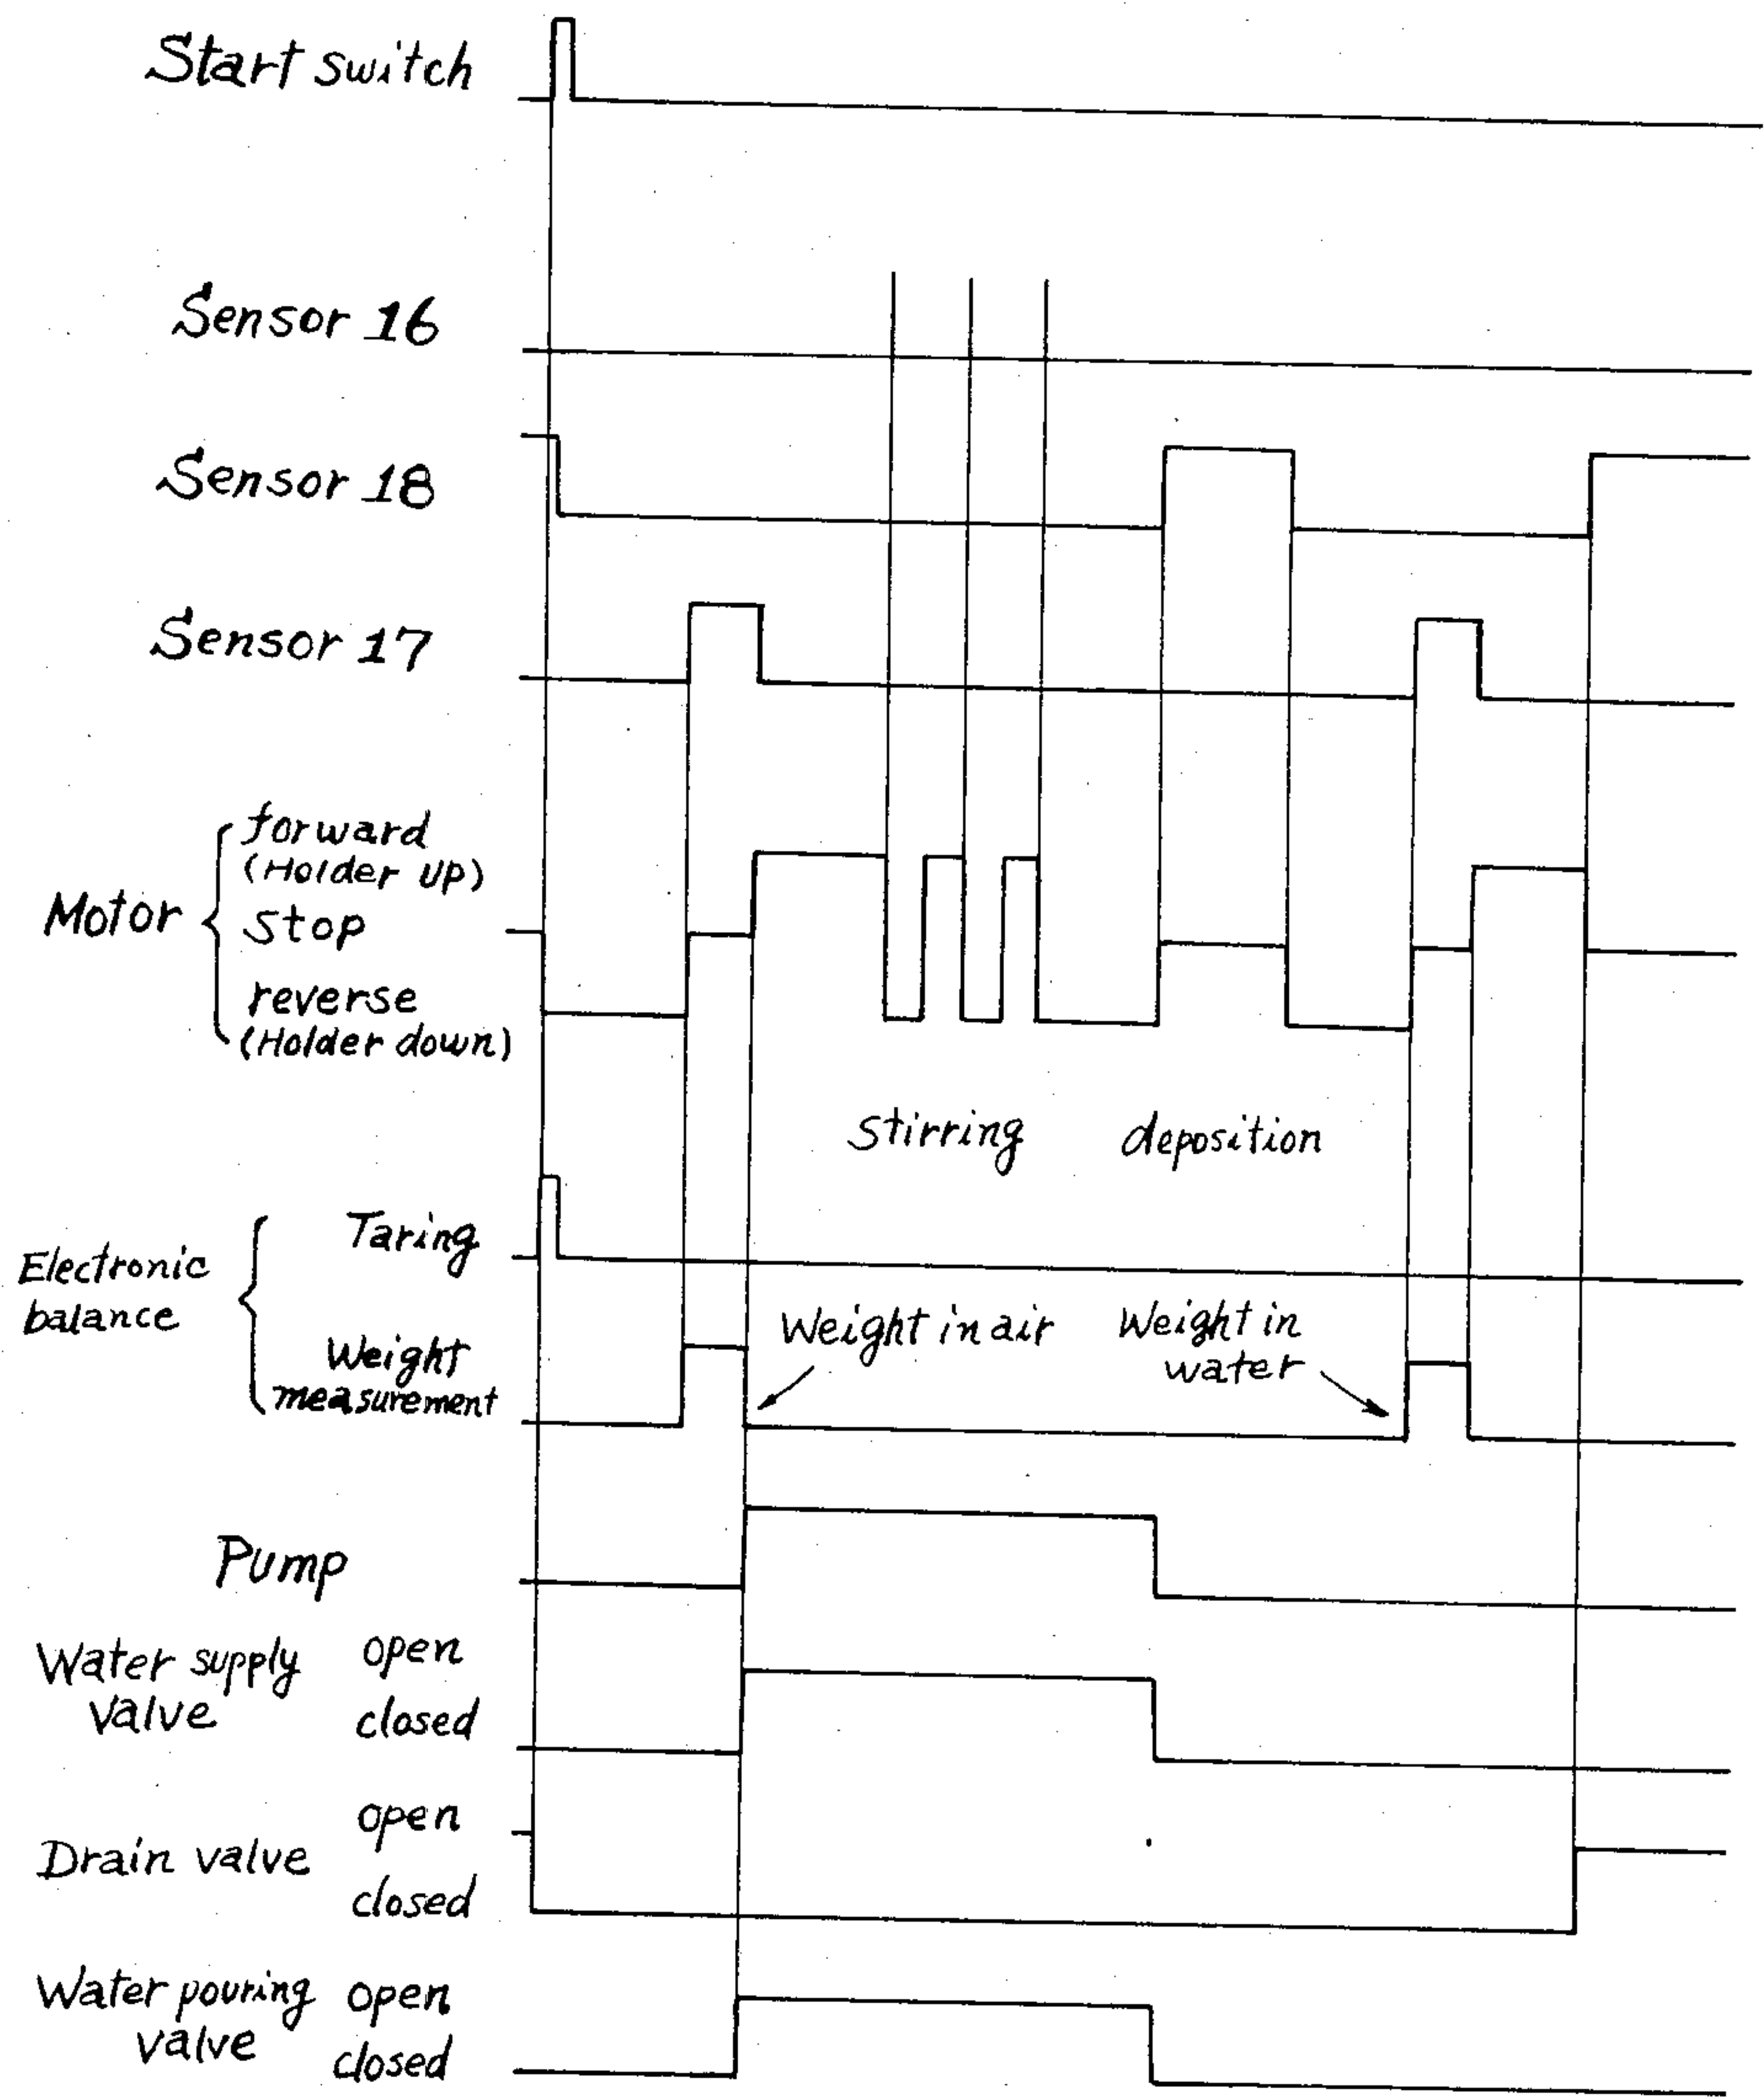 Start switch
Sensor 16
Sensor 18
Sensor 17
Motor
forward
(Holder up)
stop
reverse
(Holder down)
stirring
deposition
Electronic
balance
Taring
Weight
measurement
Weight in air
Weight in
water
Pump
Water supply
valve
open
closed
Drain valve
open
closed
Water pouring
valve
open
closed